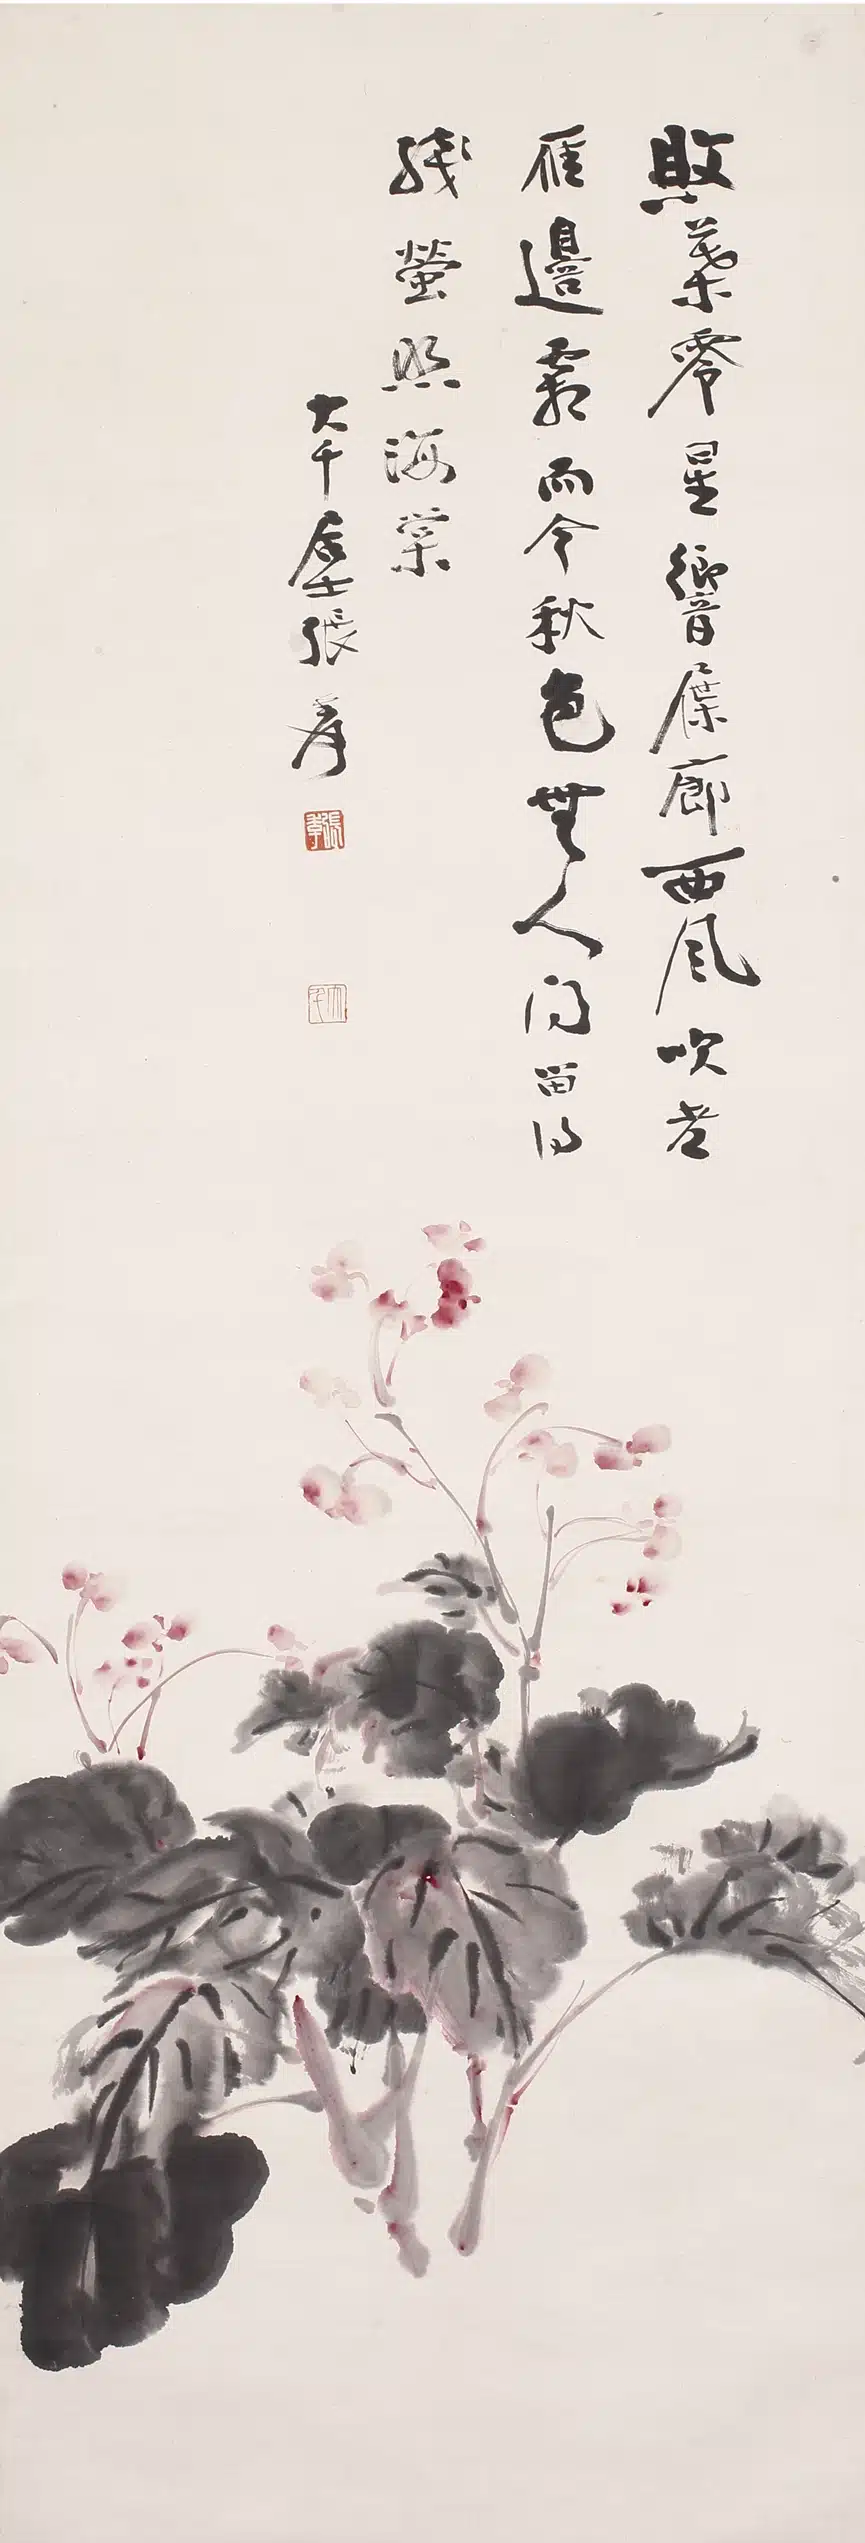 敗葉零星響屧廊西風吹老
雁邊霜而今秋色無人問留得
殘螢照海棠
大千居士張爰
大千